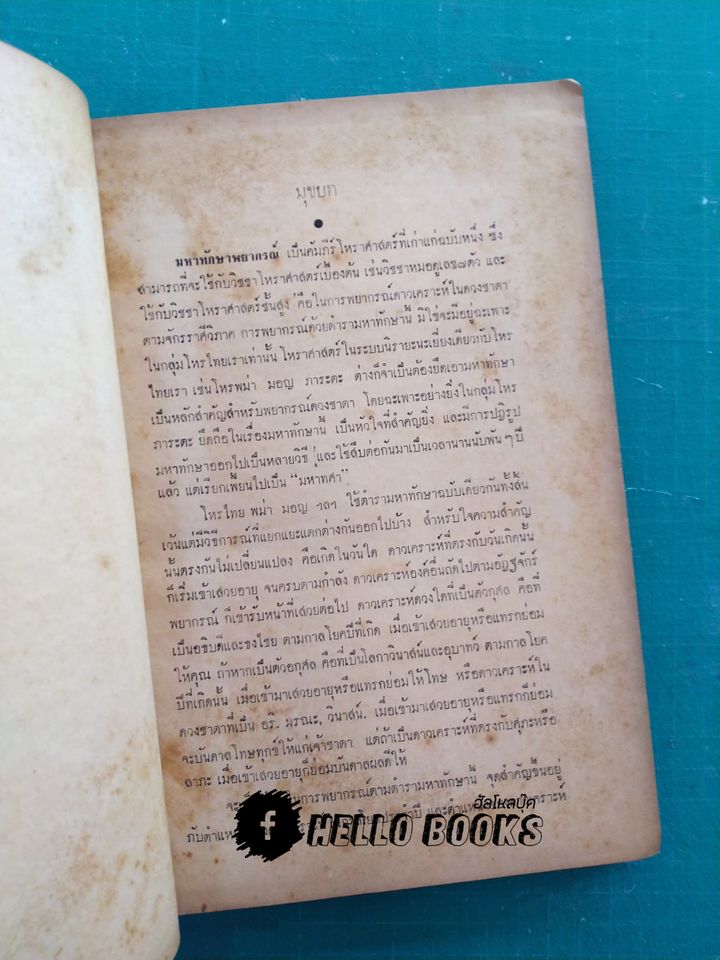 มุขบท
มหาทักษาพยากรณ์ เป็นคัมภีร์โหราศาสตร์ที่เก่าแก่ฉบับหนึ่ง ซึ่ง
สามารถที่จะใช้กับวิชชาโหราศาสตร์เบื้องต้น เช่นวิชชาหมอดูเลข๗ตัว และ
ใช้กับวิชชาโหราศาสตร์ชั้นสูง คือในการพยากรณ์ดาวเคราะห์ในดวงชาตา
ตามจักรราศีวิภาค การพยากรณ์ด้วยตำรามหาทักษานี้ มิใช่จะมีอยู่ฉะเพาะ
ในกลุ่มโหรไทยเราเท่านั้น โหราศาสตร์ในระบบนิรายะนะเยี่ยงเดียวกับโหร
ไทยเรา เช่นโหรพม่า มอญ ภาระตะ ต่างก็จำเป็นต้องยึดเอามหาทักษา
เป็นหลักสำคัญสำหรับพยากรณ์ดวงชาตา โดยฉะเพาะอย่างยิ่งในกลุ่มโหร
ภาระตะ ยึดถือในเรื่องมหาทักษานี้ เป็นหัวใจที่สำคัญยิ่ง และมีการปฏิรูป
มหาทักษาออกไปเป็นหลายวิธี และใช้สืบต่อกันมาเป็นเวลานานนับพันๆปี
แล้ว แต่เรียกเพี้ยนไปเป็น “มหาทศา”
โหรไทย พม่า มอญ ฯลฯ ใช้ตำรามหาทักษาฉบับเดียวกันทั้งสิ้น
เว้นแต่มีวิธีการณ์ที่แยกแยะแตกต่างกันออกไปบ้าง สำหรับใจความสำคัญ
นั้นตรงกันไม่เปลี่ยนแปลง คือเกิดในวันใด ดาวเคราะห์ที่ตรงกับวันเกิดนั้น
ก็เริ่มเข้าเสวยอายุ จนครบตามกำลัง ดาวเคราะห์องค์อื่นถัดไปตามอัฏฐจักร์
พยากรณ์ ก็เข้ารับหน้าที่เสวยต่อไป ดาวเคราะห์ดวงใดที่เป็นตัวกุศล คือที่
เป็นอธิบดีและธงไชย ตามกาลโยคปีที่เกิด เมื่อเข้าเสวยอายุหรือแทรกย่อม
ให้คุณ ถ้าหากเป็นตัวอกุศล คือที่เป็นโลกาวินาสน์และอุบาทว์ ตามกาลโยค
ปีที่เกิดนั้น เมื่อเข้ามาเสวยอายุหรือแทรกย่อมให้โทษ หรือดาวเคราะห์ใน
ดวงชาตาที่เป็น อริ. มรณะ, วินาสน์. เมื่อเข้ามาเสวยอายุหรือแทรกก็ย่อม
จะบันดาลโทษทุกข์ให้แก่เจ้าชาตา แต่ถ้าเป็นดาวเคราะห์ที่ตรงกับศุภะหรือ
ลาภะ เมื่อเข้าเสวยอายุก็ย่อมบันดาลผลดีให้
การพยากรณ์ตามตำรามหาทักษานี้ จุดสำคัญขึ้นอยู่
ฮัลโหลบุ๊ค
HELLO BOOKS